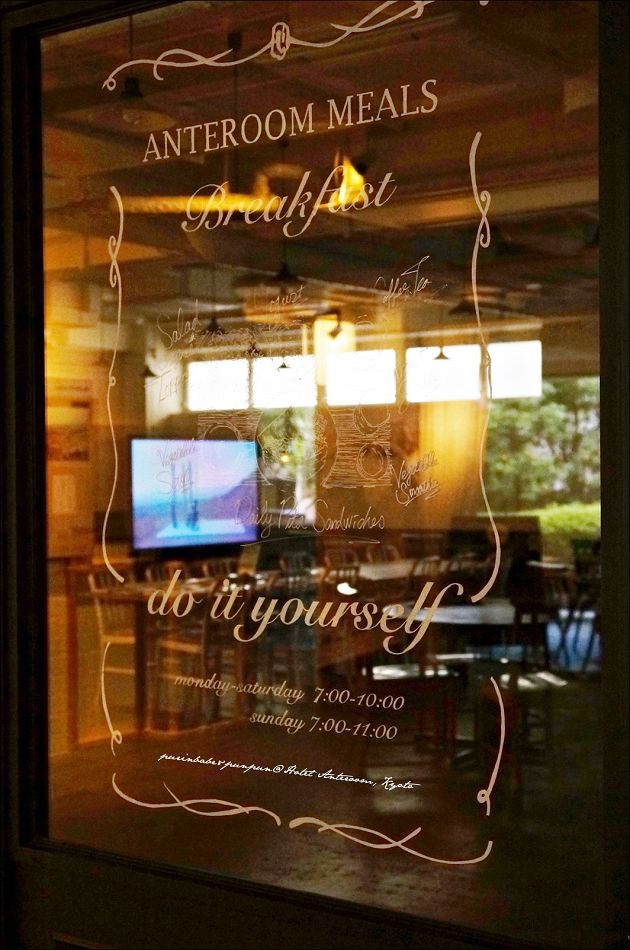 ANTEROOM MEALS
Breakfast
Salad
Yogurt
Coffee Tea
Vegetable
Vegetable
Smoothie
Daily Pita Sandwiches
do it yourself
monday-saturday 7:00-10:00
sunday 7:00-11:00
purinbabe&punpun@Hotel Anteroom, Kyoto